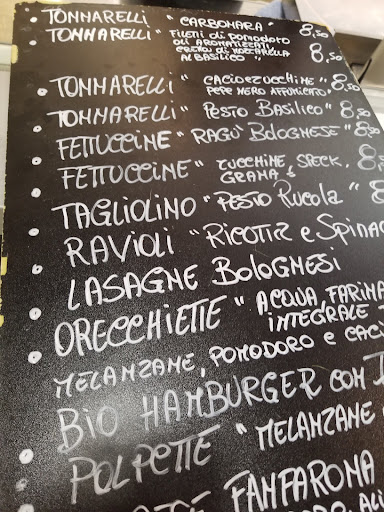 TONNARELLI "CARBONARA" 8,50
TONNARELLI "FILETTI di POMODORO
OLI AROMATIZZATI
CREMA di MOZZARELLA
AL BASILICO" 8,50
TONNARELLI "CACIO E ZUCCHINE" 8,50
PEPE NERO AFFUMICATO,
TONNARELLI "PESTO BASILICO" 8,50
FETTUCCINE "RAGÙ BOLOGNESE" 8,50
FETTUCCINE "ZUCCHINE, SPECK, 8,
GRANA"
TAGLIOLINO "PESTO RUCOLA" 8
RAVIOLI "RICOTTA e SPINAC
LASAGNE BOLOGNESI
ORECCHIETTE "ACQUA, FARINA
INTEGRALE -
MELANZANE, POMODORO E CAC
BIO HAMBURGER CON
POLPETTE "MELANZANE
FANFARONA